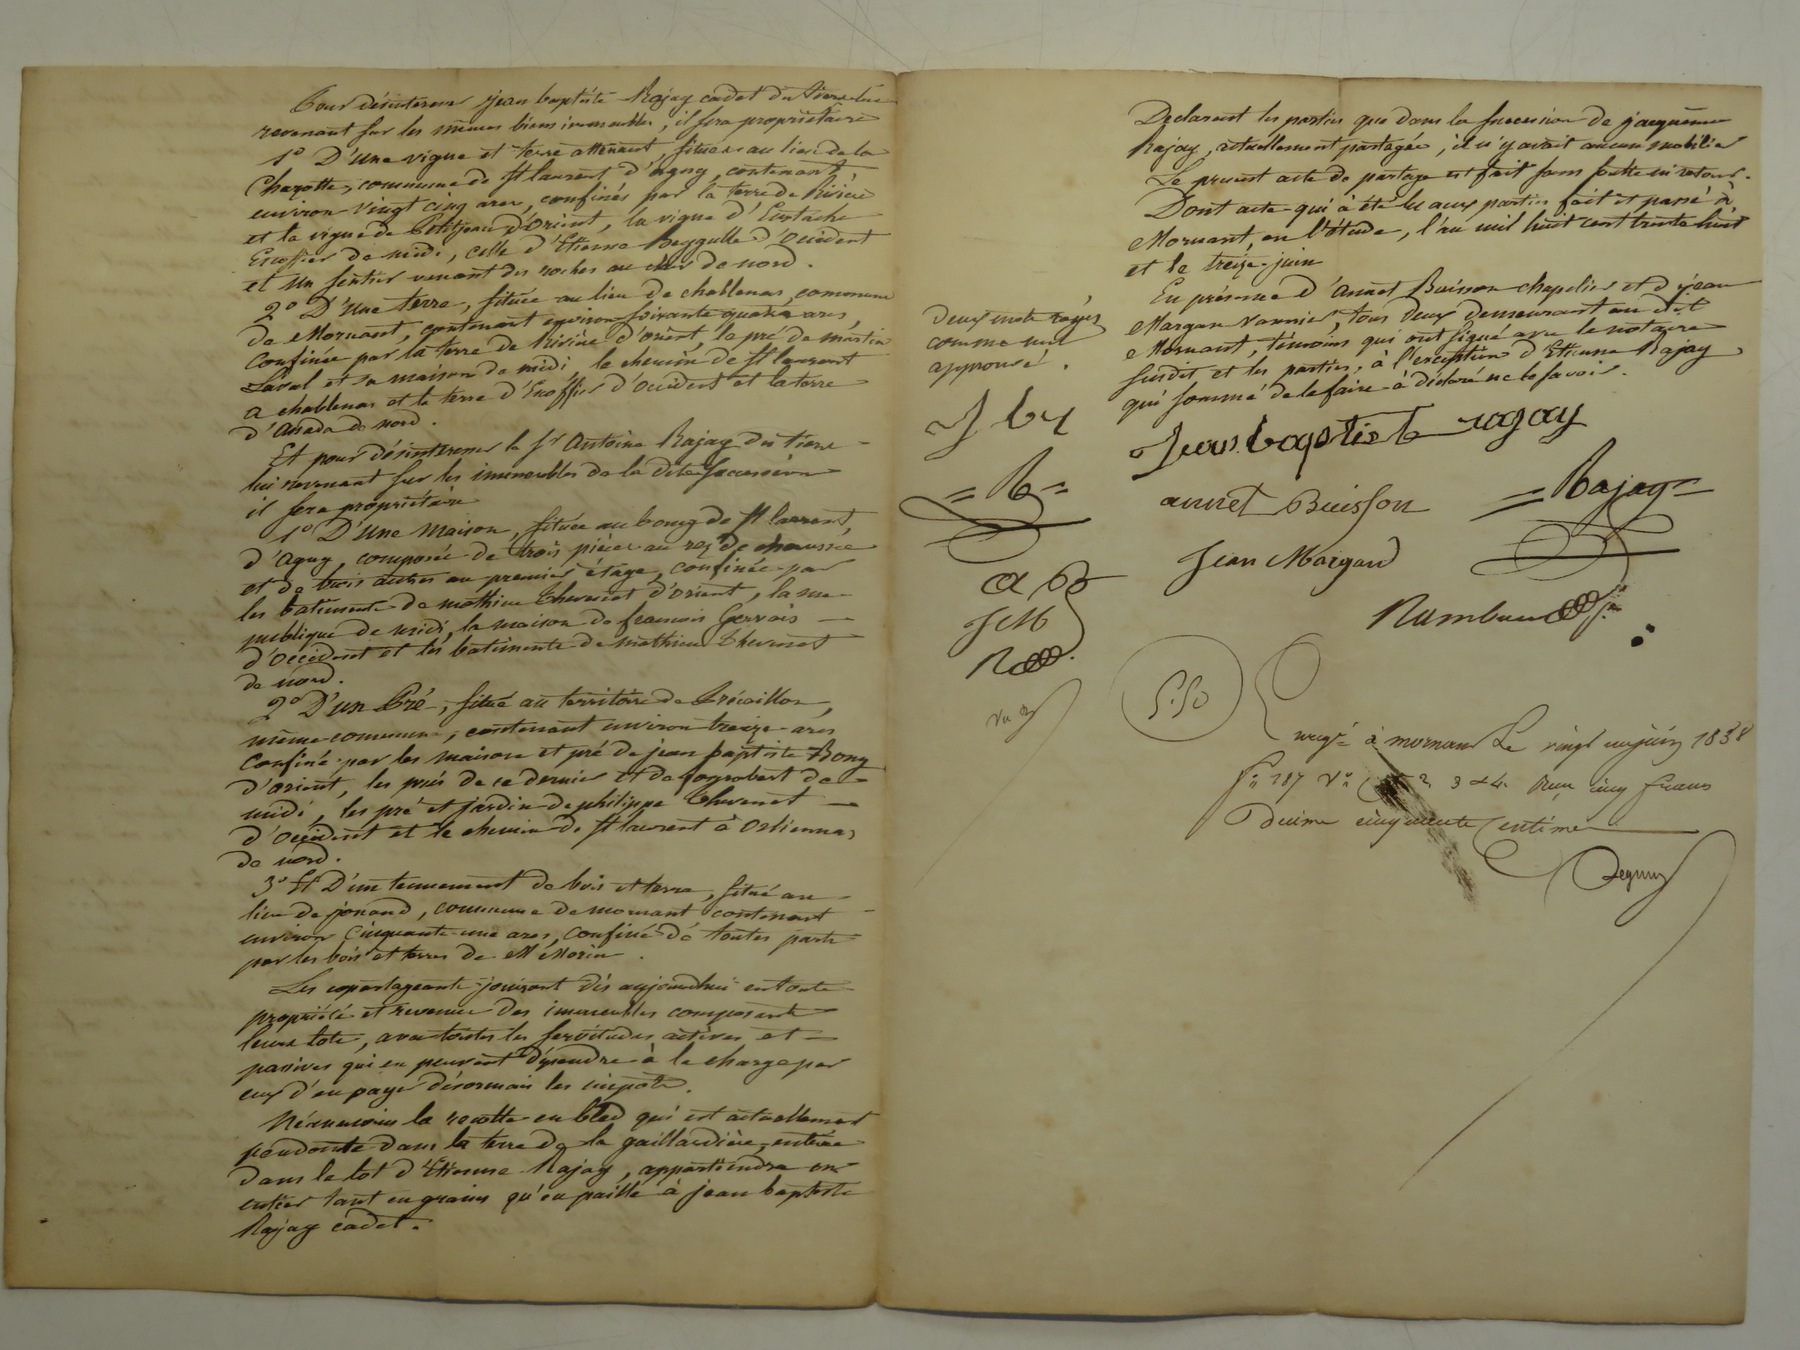 Pour désintéresser jean baptiste Rajay cadet du tiers lui
revenant sur les mêmes biens immeubles, il sera propriétaire
1º D'une vigne et terre attenant, situées au lieu de la
Chazotte, commune de St laurent d'agny, contenant
environ vingt cinq ares, confinés par la terre de Rivière
et la vigne de Petitjean d'Orient, la vigne d'Eustache
Escoffier de midi, celle d'Etienne d'Occident
et un sentier venant des roches au de nord.
2º D'Une terre, située au lieu de chablenas, commune
de Mornant, contenant environ soixante quatre ares,
confinée par la terre de Rivière d'orient, le pré de martin
Laval et sa maison de midi, le chemin de St laurent
a chablenas et la terre d'Escoffier d'Occident et la terre
d'Assada de nord.
Et pour désintéresser le Sr Antoine Rajay du tiers
lui revenant sur les immeubles de la dite Succession
il sera propriétaire
1º D'Une Maison, située au bourg de St laurent,
d'agny, composée de trois pièces au rez de chaussée
et de trois autres au premier étage, confinée par
les batiments de mathieu thevenet d'orient, la rue
publique de midi, la maison de francois Gervais
d'Occident et les batiments de mathieu thevenet
de nord.
2º D'un Pré, situé au territoire de Précaillon,
même commune, contenant environ treize ares
confiné par les maison et pré de jean baptiste Bony
d'orient, les prés de ce dernier et de de
midi, les pré et jardin de philippe thevenet
d'Occident et le chemin de St laurent à Orlienna,
de nord.
3º Et D'un tennement de bois et terre, situé au
lieu de jonand, commune de mornant contenant
environ Cinquante une ares, confiné de toutes parts
par les bois et terres de M Morin.
Les copartageants jouiront dès aujourd'hui en toute
propriété et revenu des immeubles composants
leurs lots, avec toutes les servitudes actives et
passives qui en peuvent dépendre à la charge par
eux d'en payer désormais les impôts.
Néanmoins la récolte en bled qui est actuellement
pendante dans la terre de la gaillardière, entrée
dans le lot d'Etienne Rajay, appartiendra en
entier tant en grains qu'en paille à jean baptiste
Rajay cadet.
Declarent les parties que dans la succession de jacquème
Rajay, actuellement partagée, il n'y avait aucun mobilier
Le present acte de partage est fait sans soulte ni retour.
Dont acte qui à été lu aux parties fait et passé à
Mornant, en l'étude, l'an mil huit cent trente huit
et le treize juin
En présence d'Annet Buisson chapelier et d jean
Margan vannier, tous deux demeurant au dit
Mornant, témoins qui ont signé avec le notaire
susdit et les parties, à l'exception d'Etienne Rajay
qui sommé de le faire à déclaré ne le savoir.
deux mots rayés
comme nul
approuvé.
J b r
Jean baptiste ragay
= R =
annet Buisson
= Rajay =
Jean Margand
a B
J M
R
vu
Enregé à mornant Le vingt un juin 1838
fo 187 Vo 2 3 et 4. Reçu cinq francs
Decime cinquante Centimes